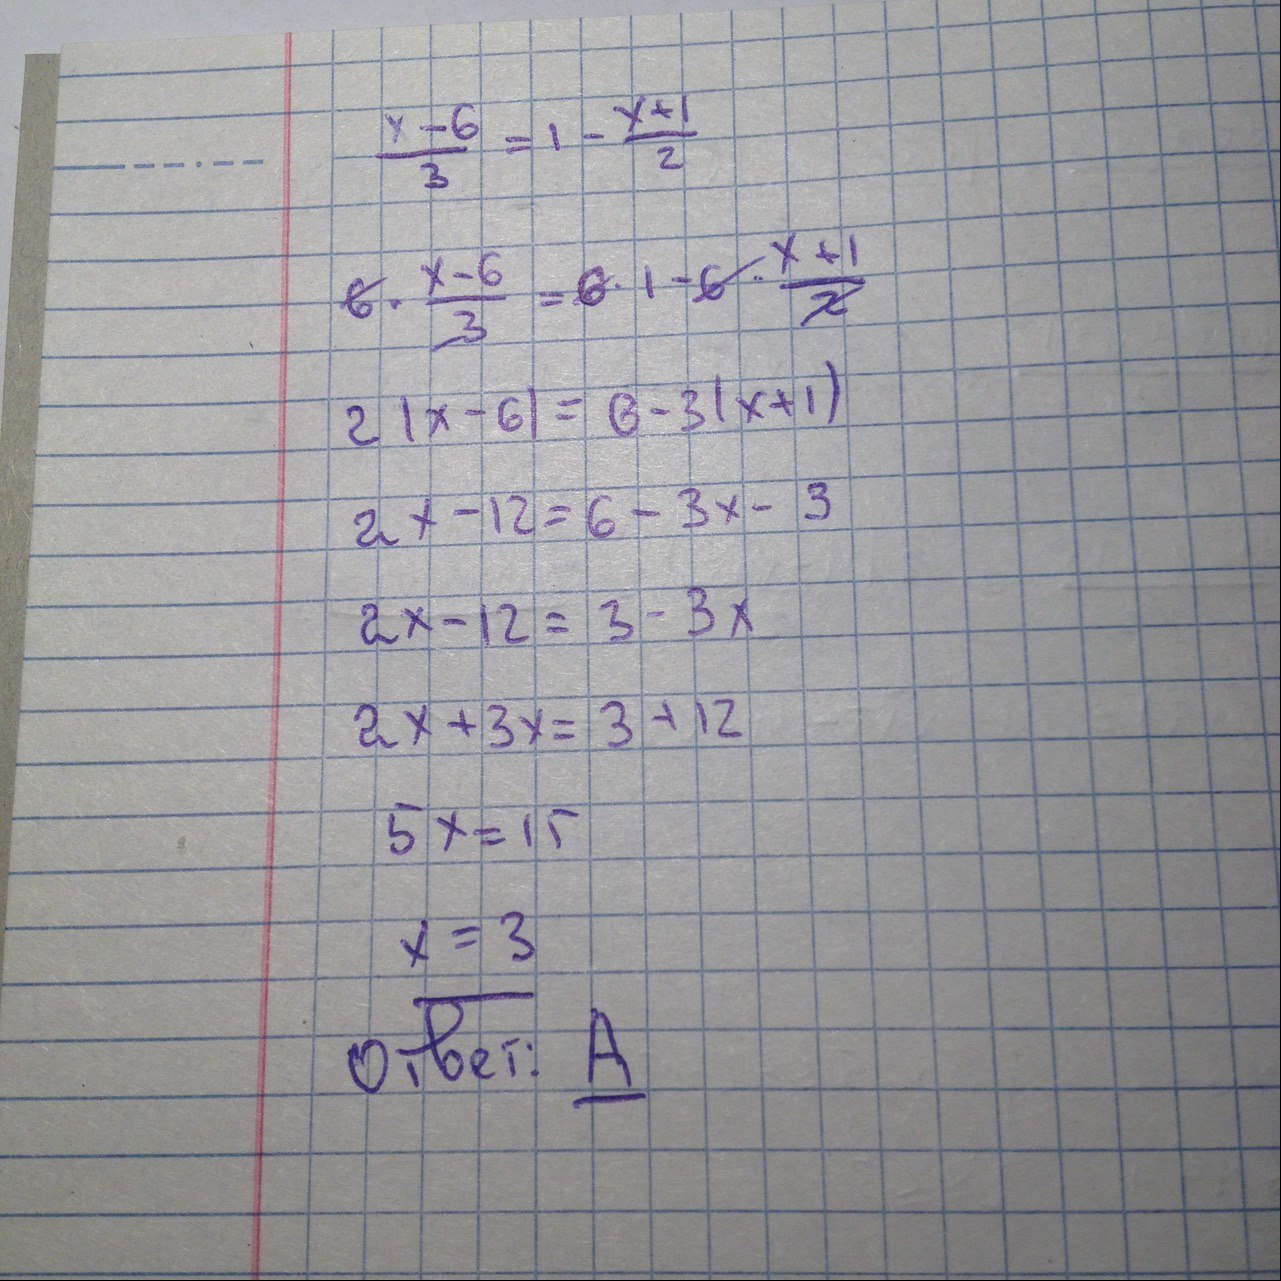 x-6/3 = 1 - x+1/2
6 · x-6/3 = 6 · 1 - 6 · x+1/2
2(x-6) = 6-3(x+1)
2x-12=6-3x-3
2x-12=3-3x
2x+3x=3+12
5x=15
x=3
Ответ: А